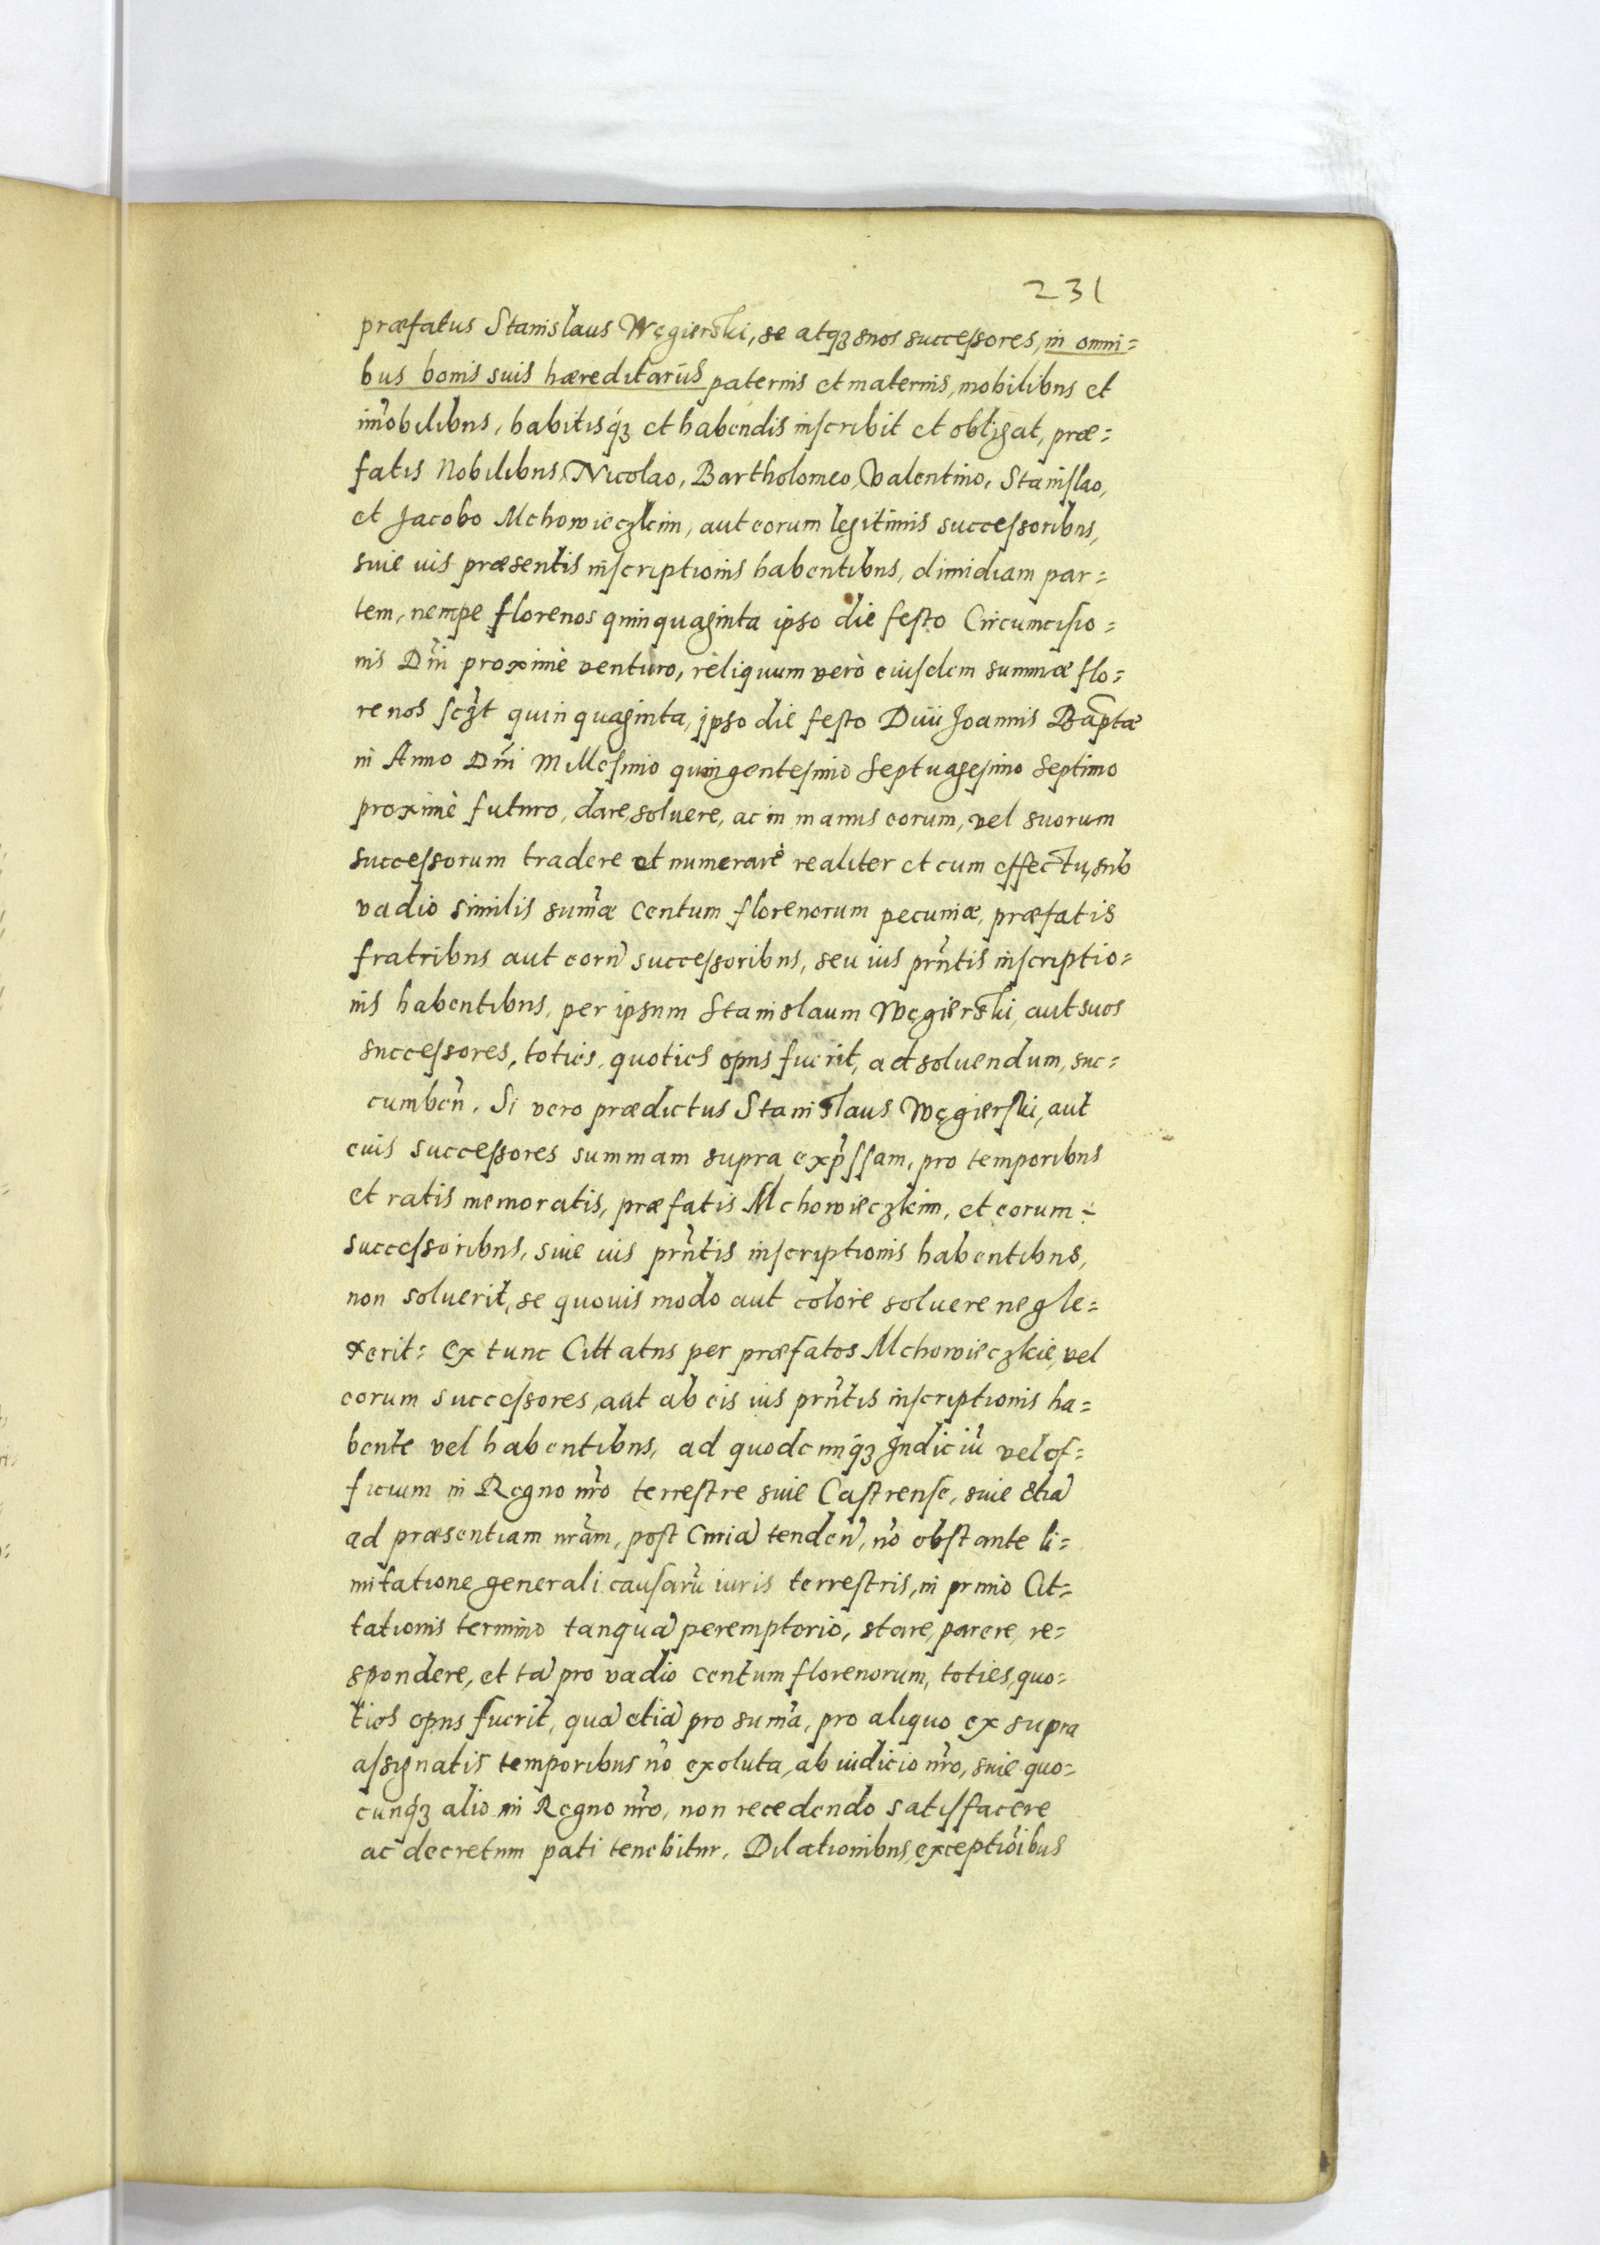 231
præfatus Stanislaus Węgierski, se atqꝫ suos successores, in omni=
bus bonis suis hæreditariis paternis et maternis, mobilibus et
im̃obilibus, habitisqꝫ et habendis inscribit et obligat, præ=
fatis Nobilibus, Nicolao, Bartholomeo, Valentino, Stanislao,
et Jacobo Mchowieczkim, aut eorum legitimis successoribus,
siue ius præsentis inscriptionis habentibus, dimidiam par=
tem, nempe florenos quinquaginta ipso die festo Circumcisio=
nis Dni proximè venturo, reliquum verò eiusdem summæ flo=
renos scꝫt quinquaginta, ipso die festo Diui Joannis Baptæ
in Anno Dni Millesimo quingentesimo Septuagesimo Septimo
proximè futuro, dare, soluere, ac in manus eorum, vel suorum
successorum tradere et numerare realiter et cum effectu, sub
vadio similis sum̃æ centum florenorum pecuniæ, præfatis
fratribus aut eorũ successoribus, seu ius prñtis inscriptio=
nis habentibus, per ipsum Stanislaum Węgierski, aut suos
successores, toties, quoties opus fuerit, ad soluendum, suc=
cumbeñ. Si vero prædictus Stanislaus Węgierski, aut
euis successores summam supra exp̃ssam, pro temporibus
et ratis memoratis, præfatis Mchowieczkim, et eorum =
successoribus, siue ius prñtis inscriptionis habentibus,
non soluerit, se quouis modo aut colore soluere negle=
xerit: ex tunc Cittatus per præfatos Mchowieczkie, vel
eorum successores, aut ab eis ius prñtis inscriptionis ha=
bente vel habentibus, ad quodcunqꝫ Judiciũ vel of=
ficium in Regno nr̃o terrestre siue Castrense, siue etiã
ad præsentiam nrãm, post Curiã tendeñ, nõ obstante li=
mitatione generali causarũ iuris terrestris, in primo Cit=
tationis termino tanquã peremptorio, stare, parere, re=
spondere, et tã pro vadio centum florenorum, toties, quo=
ties opus fuerit, quã etiã pro sum̃a, pro aliquo ex supra
assignatis temporibus nõ exoluta, ab iudicio nr̃o, siue quo=
cunqꝫ alio in Regno nr̃o, non recedendo satisfacere
ac decretum pati tenebitur. Dilationibus, exceptiõibus